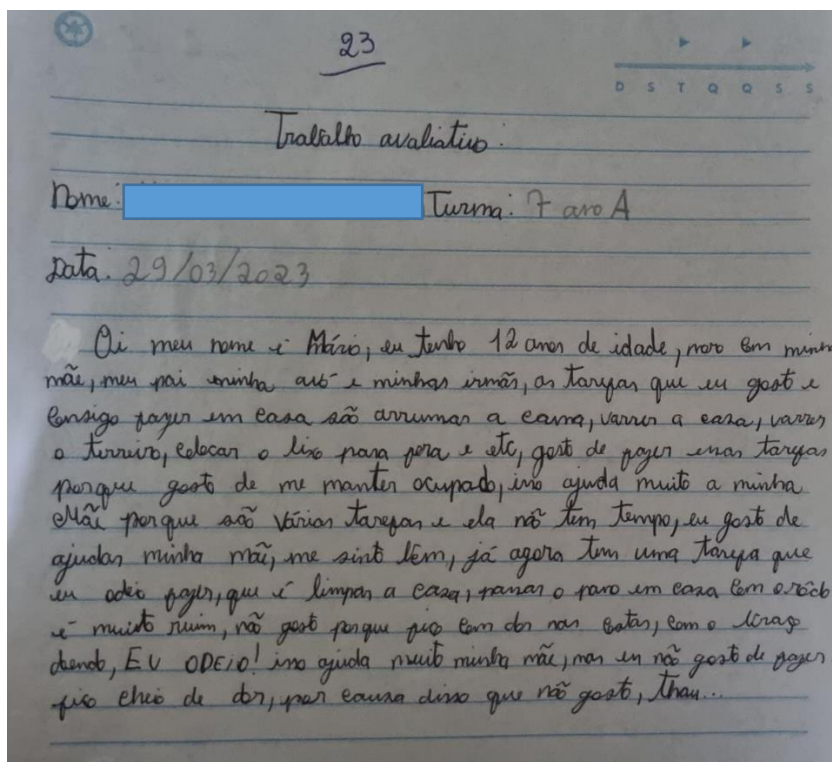 23
D S T Q Q S S
Trabalho avaliativo:
Nome: Turma: 7 ano A
Data: 29/03/2023
Oi meu nome é Mário, eu tenho 12 anos de idade, moro com minha
mãe, meu pai minha avó e minhas irmãs, as tarefas que eu gosto e
consigo fazer em casa são arrumar a cama, varrer a casa, varrer
o terreiro, colocar o lixo para fora e etc, gosto de fazer essas tarefas
porque gosto de me manter ocupado, isso ajuda muito a minha
Mãe porque são várias tarefas e ela não tem tempo, eu gosto de
ajudar minha mãe, me sinto bem, já agora tem uma tarefa que
eu odeio fazer, que é limpar a casa, passar o pano em casa com o rodo
é muito ruim, não gosto porque fico com dor nas costas, com o braço
doendo, EU ODEIO! isso ajuda muito minha mãe, mas eu não gosto de fazer
fico cheio de dor, por causa disso que não gosto, thau...